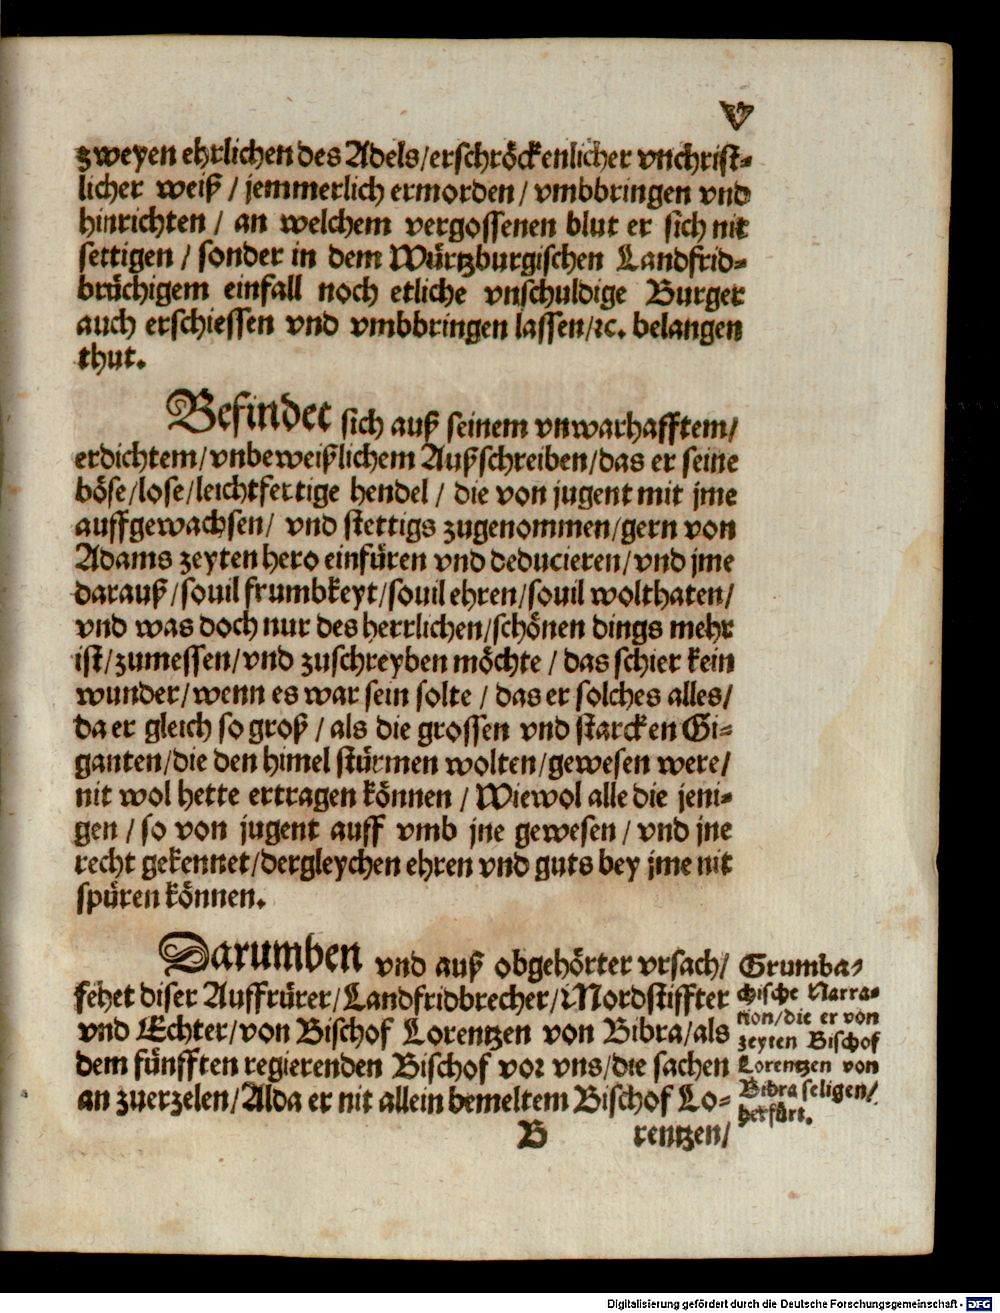 V
zweyen ehrlichen des Adels/erschröckenlicher vnchrist-
licher weiß / jemmerlich ermorden / vmbbringen vnd
hinrichten / an welchem vergossenen blut er sich nit
settigen / sonder in dem Würtzburgischen Landfrid-
brüchigem einfall noch etliche vnschuldige Burger
auch erschiessen vnd vmbbringen lassen/ꝛc. belangen
thut.
Befindet sich auß seinem vnwarhafftem/
erdichtem/vnbeweißlichem Außschreiben/das er seine
böse/lose/leichtfertige hendel / die von jugent mit jme
auffgewachsen/ vnd stettigs zugenommen/gern von
Adams zeyten hero einfüren vnd deducieren/vnd jme
darauß/souil frumbkeyt/souil ehren/souil wolthaten/
vnd was doch nur des herrlichen/schönen dings mehr
ist/zumessen/vnd zuschreyben möchte / das schier kein
wunder/wenn es war sein solte / das er solches alles/
da er gleich so groß / als die grossen vnd starcken Gi-
ganten/die den himel stürmen wolten/gewesen were/
nit wol hette ertragen können / Wiewol alle die jeni-
gen / so von jugent auff vmb jne gewesen / vnd jne
recht gekennet/dergleychen ehren vnd guts bey jme nit
spüren können.
Darumben vnd auß obgehörter vrsach/
fehet diser Auffrürer/Landfridbrecher/Mordstiffter
vnd Echter/von Bischof Lorentzen von Bibra/als
dem fünfften regierenden Bischof vor vns/die sachen
an zuerzelen/Alda er nit allein bemeltem Bischof Lo-
Grumba-
chische Narra-
tion/die er von
zeyten Bischof
Lorentzen von
Bibra seligen/
herfürt.
B rentzen/
Digitalisierung gefördert durch die Deutsche Forschungsgemeinschaft - DFG